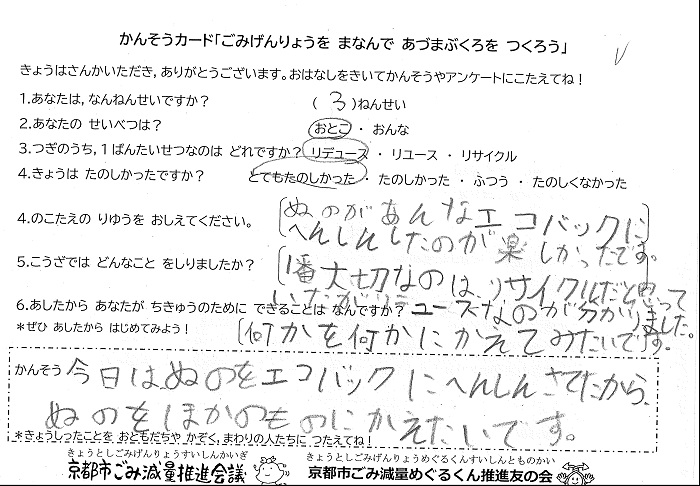 かんそうカード「ごみげんりょうを まなんで あづまぶくろを つくろう」
きょうはさんかいただき、ありがとうございます。おはなしをきいてかんそうやアンケートにこたえてね！
1.あなたは、なんねんせいですか？ （ 3 ）ねんせい
2.あなたの せいべつは？ おとこ ・ おんな
3.つぎのうち、1ばんたいせつなのは どれですか？ リデュース ・ リユース ・ リサイクル
4.きょうは たのしかったですか？ とてもたのしかった ・ たのしかった ・ ふつう ・ たのしくなかった
4.のこたえの りゆうを おしえてください。
ぬのがあんなエコバックに
へんしんしたのが楽しかったです。
5.こうざでは どんなこと をしりましたか？
1番大切なのは、リサイクルだと思って
いたがリデュースなのが分かりました。
6.あしたから あなたが ちきゅうのために できることは なんですか？
*ぜひ あしたから はじめてみよう！
何かを何かにかえてみたいです。
かんそう 今日は、ぬのをエコバックにへんしんさてたから、
ぬのをほかのものにかえたいです。
*きょうしったことを おともだちや かぞく、まわりの人たちに つたえてね！
きょうとしごみげんりょうすいしんかいぎ
京都市ごみ減量推進会議
きょうとしごみげんりょうめぐるくんすいしんとものかい
京都市ごみ減量めぐるくん推進友の会